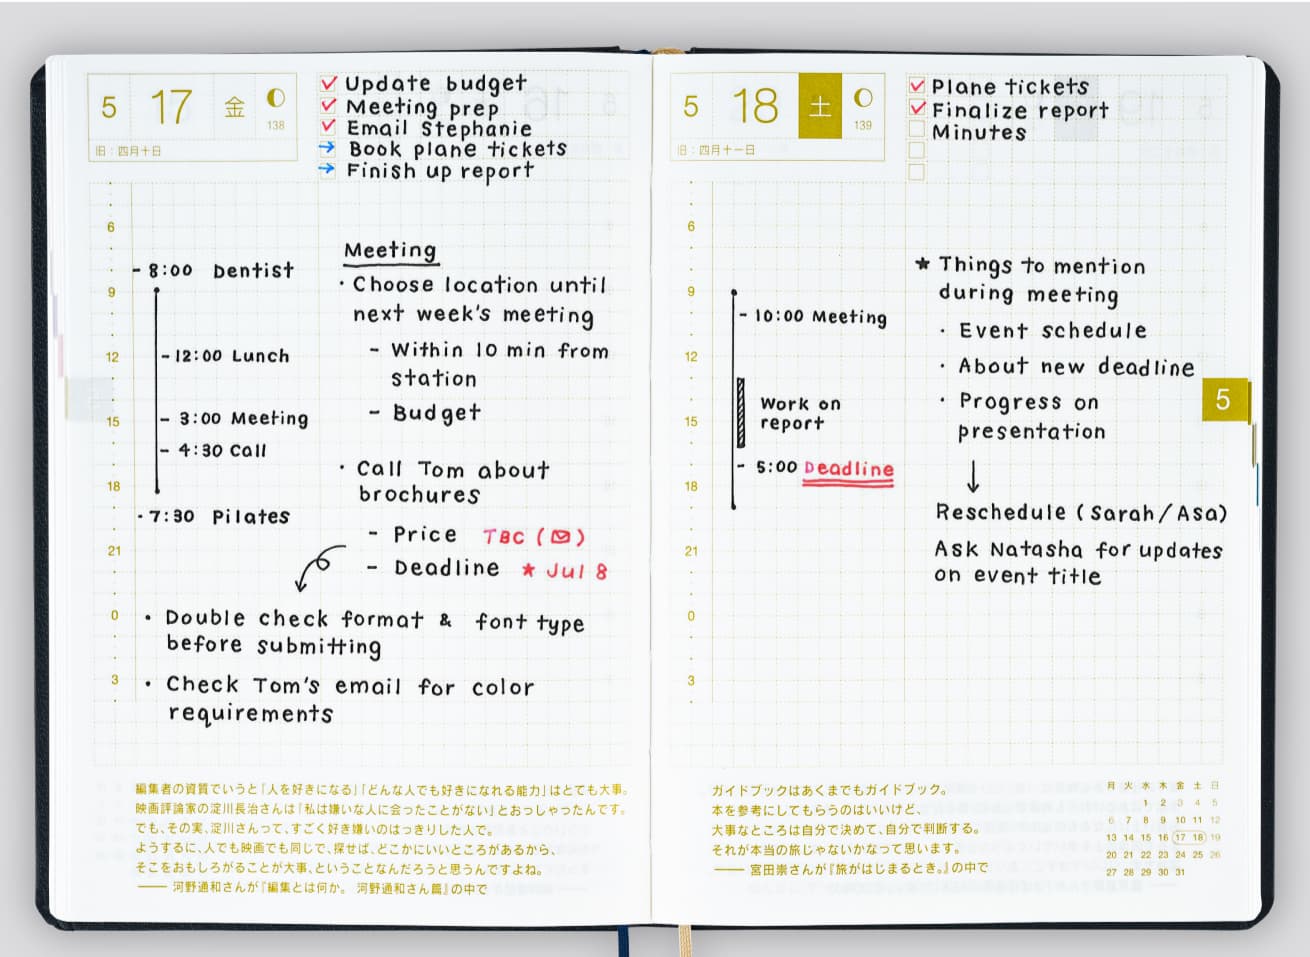 5 17 金
138
旧：四月十日
Update budget
Meeting prep
Email Stephanie
Book plane tickets
Finish up report
6
- 8:00 Dentist
9
12
- 12:00 Lunch
15
- 3:00 Meeting
- 4:30 Call
18
- 7:30 Pilates
21
0
3
Meeting
· Choose location until
next week's meeting
- Within 10 min from
station
- Budget
· Call Tom about
brochures
- Price TBC ( )
- Deadline ★ Jul 8
· Double check format & font type
before submitting
· Check Tom's email for color
requirements
編集者の資質でいうと「人を好きになる」「どんな人でも好きになれる能力」はとても大事。
映画評論家の淀川長治さんは「私は嫌いな人に会ったことがない」とおっしゃったんです。
でも、その実、淀川さんって、すごく好き嫌いのはっきりした人で。
ようするに、人でも映画でも同じで、探せば、どこかにいいところがあるから、
そこをおもしろがることが大事、ということなんだろうと思うんですよね。
―― 河野通和さんが『編集とは何か。 河野通和さん篇』の中で
5 18 土
139
旧：四月十一日
Plane tickets
Finalize report
Minutes
6
9
- 10:00 Meeting
12
Work on
report
15
- 5:00 Deadline
18
21
0
3
★ Things to mention
during meeting
· Event schedule
· About new deadline
· Progress on
presentation
Reschedule (Sarah/Asa)
Ask Natasha for updates
on event title
5
ガイドブックはあくまでもガイドブック。
本を参考にしてもらうのはいいけど、
大事なところは自分で決めて、自分で判断する。
それが本当の旅じゃないかなって思います。
―― 宮田崇さんが『旅がはじまるとき。』の中で
月 火 水 木 金 土 日
1 2 3 4 5
6 7 8 9 10 11 12
13 14 15 16 17 18 19
20 21 22 23 24 25 26
27 28 29 30 31